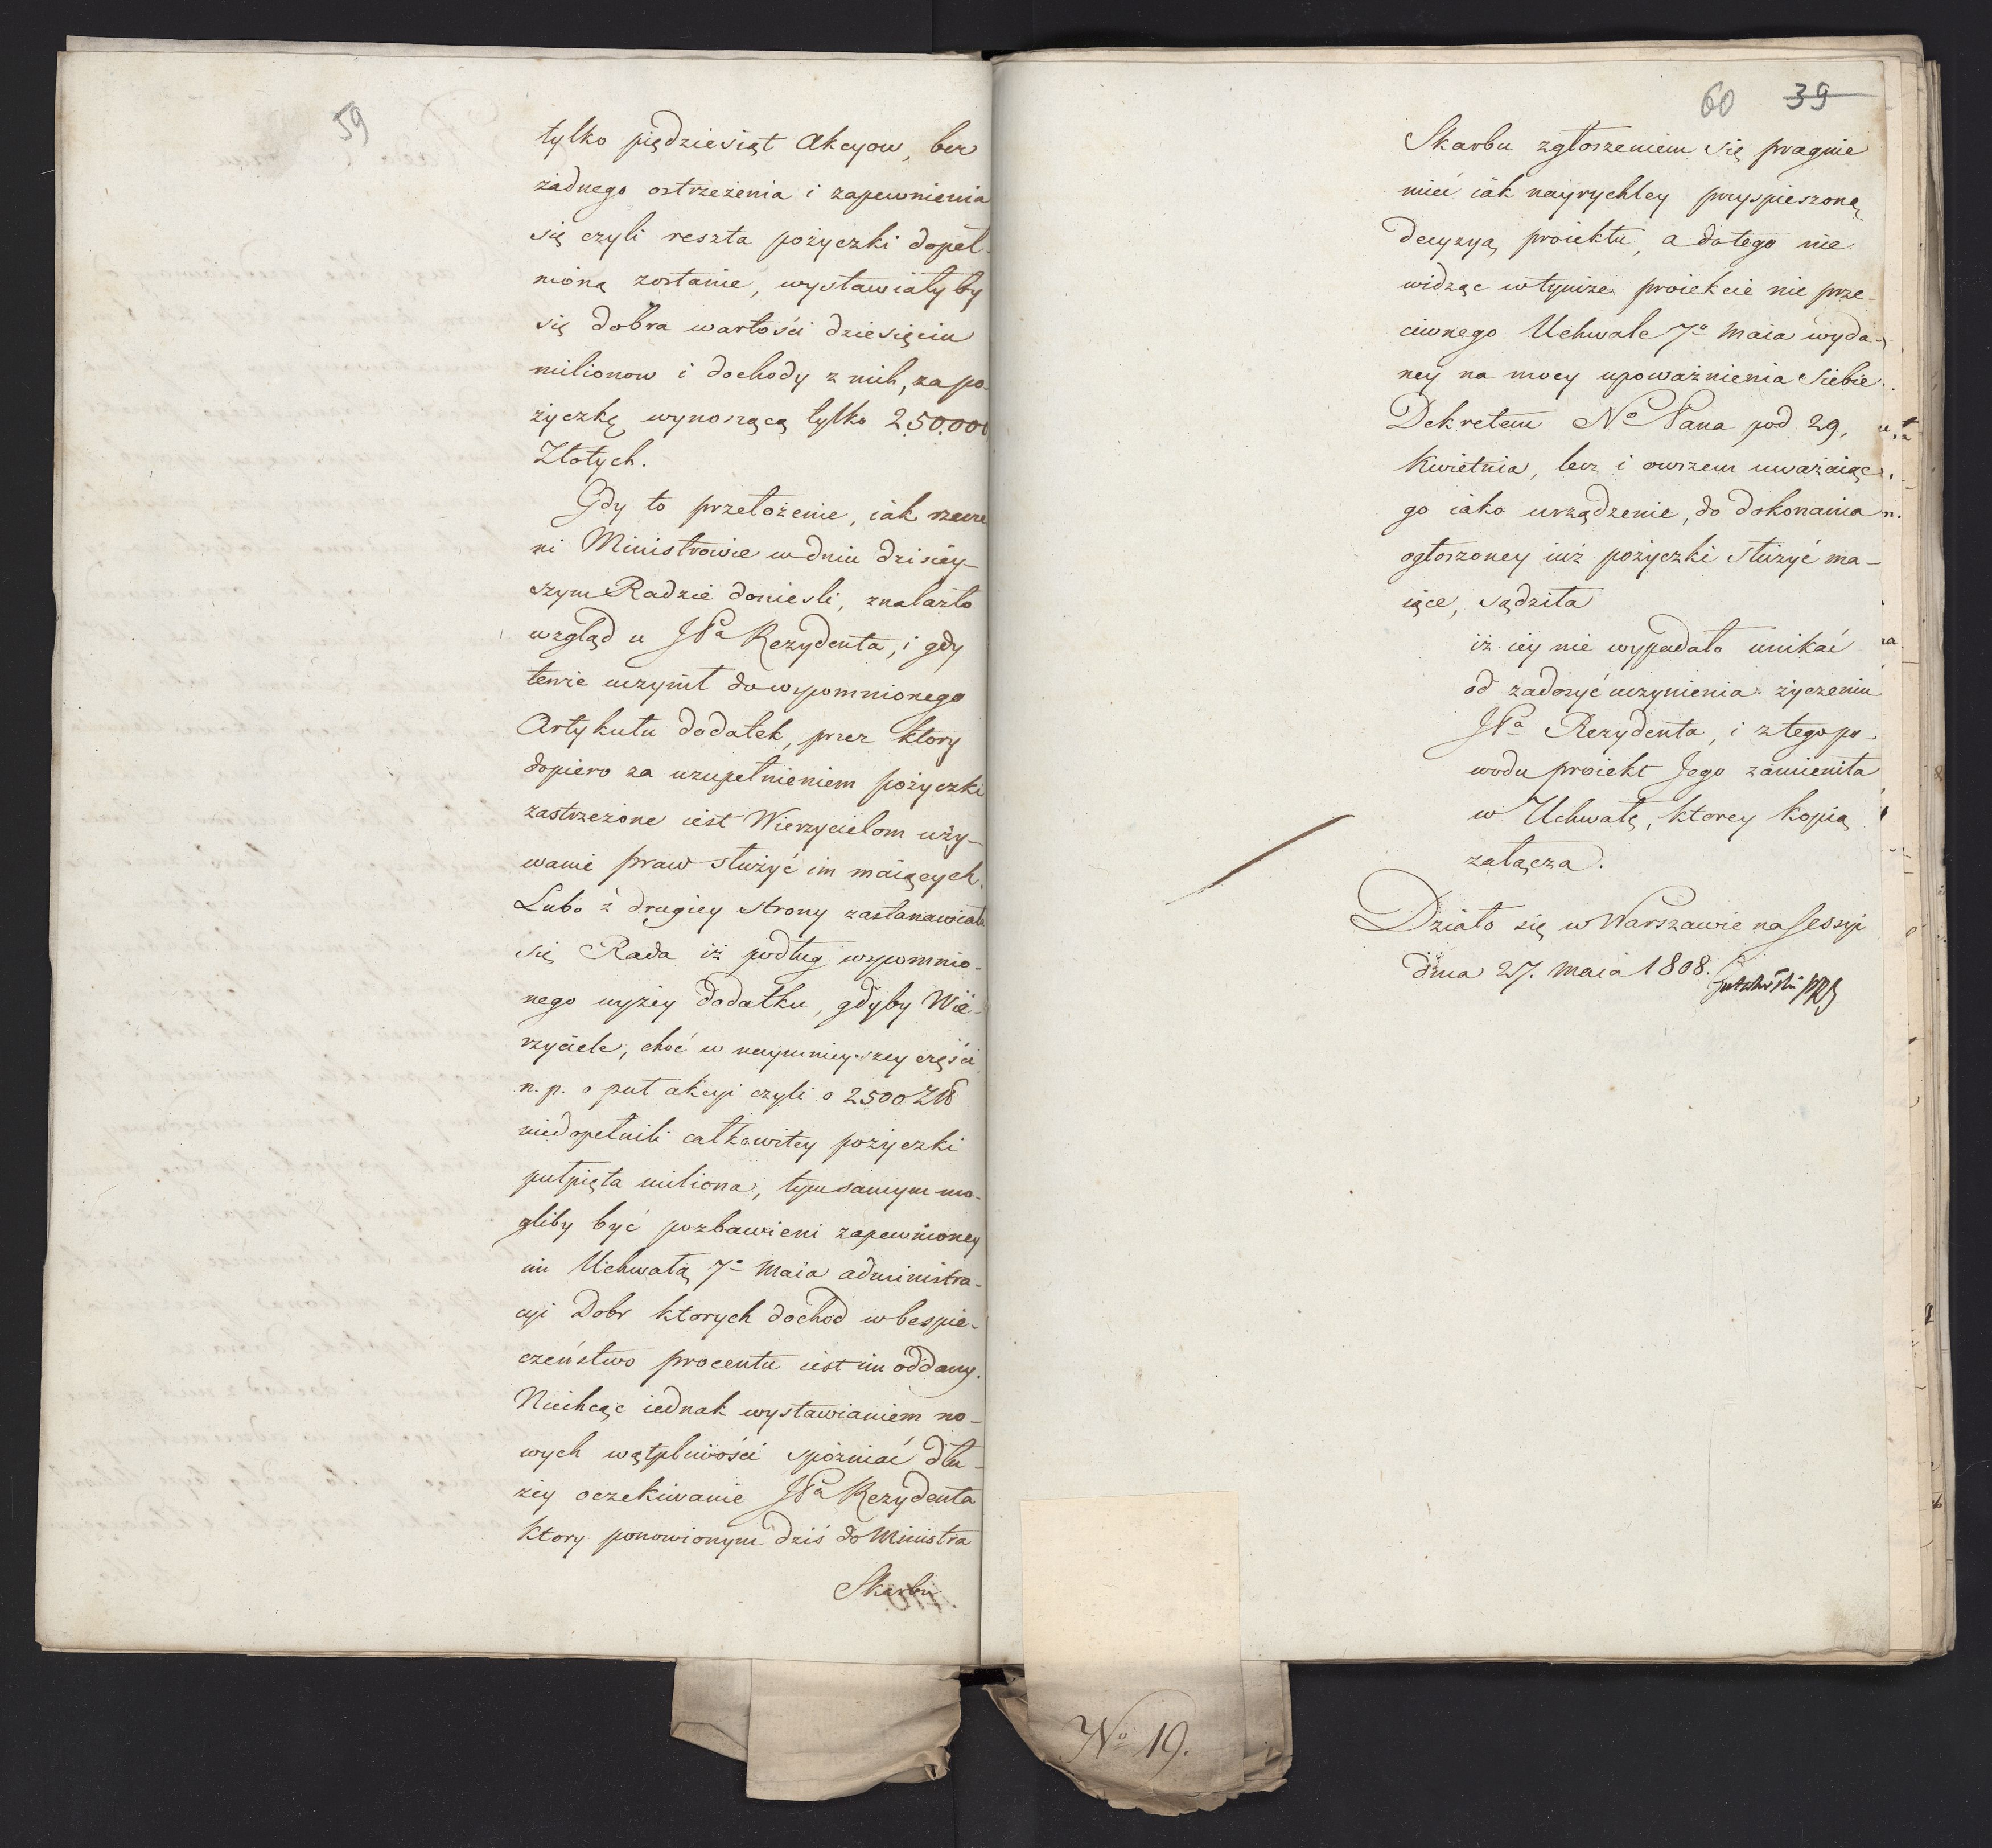 59
tylko piędziesiąt Akcyow, bez
żadnego ostrzeżenia i zapewnienia
się czyli reszta pożyczki dopeł-
nioną zostanie, wystawiałyby
się dobra wartości dziesięciu
milionow i dochody z nich, za po-
życzkę wynoszącą tylko 250.000
Złotych.
Gdy to przełożenie, iak rzecze
ni Ministrowie w dniu dzisiey-
szym Radzie donieśli, znalazło
wzgląd u JPa Rezydenta, i gdy
tenże uczynił do wspomnionego
Artykułu dodatek, przez ktory
dopiero za uzupełnieniem pożyczki
zastrzeżone iest Wierzycielom uży-
wanie praw służyć im maiących.
Lubo z drugiey strony zastanawiała
się Rada iż podług wspomnio-
nego wyżey dodatku, gdyby Wie-
rzyciele, choć w naymnieyszey części
n. p. o puł akcyi czyli o 2500 Zł
niedopełnili całkowitey pożyczki
pułpięta miliona, tym samym mo-
gliby być pozbawieni zapewnioney
im Uchwałą 7o Maia administra-
cyi Dobr ktorych dochod w bespie-
czeństwo procentu iest im oddany.
Niechcąc iednak wystawianiem no-
wych wątpliwości spóźniać dłu-
żey oczekiwanie JPa Rezydenta
ktory ponowionym dziś do Ministra
Skarbu
60 39
Skarbu zgłoszeniem się pragnie
mieć iak nayrychley przyspieszoną
decyzyą proiektu, a do tego nie
widząc w tymże proiekcie nic prze-
ciwnego Uchwale 7o Maia wyda-
ney na mocy upoważnienia Siebie
Dekretem No Pana pod 29,
Kwietnia, lecz i owszem uważaiąc
go iako urządzenie, do dokonania
ogłoszoney iuż pożyczki służyć ma-
iące, sądziła
iż iey nie wypadało unikać
od zadosyć uczynienia życzeniu
JPa Rezydenta, i z tego po-
wodu proiekt Jego zamieniła
w Uchwałę, ktorey kopią
załącza.
Działo się w Warszawie na Sessyi
dnia 27. Maia 1808.
No 19.